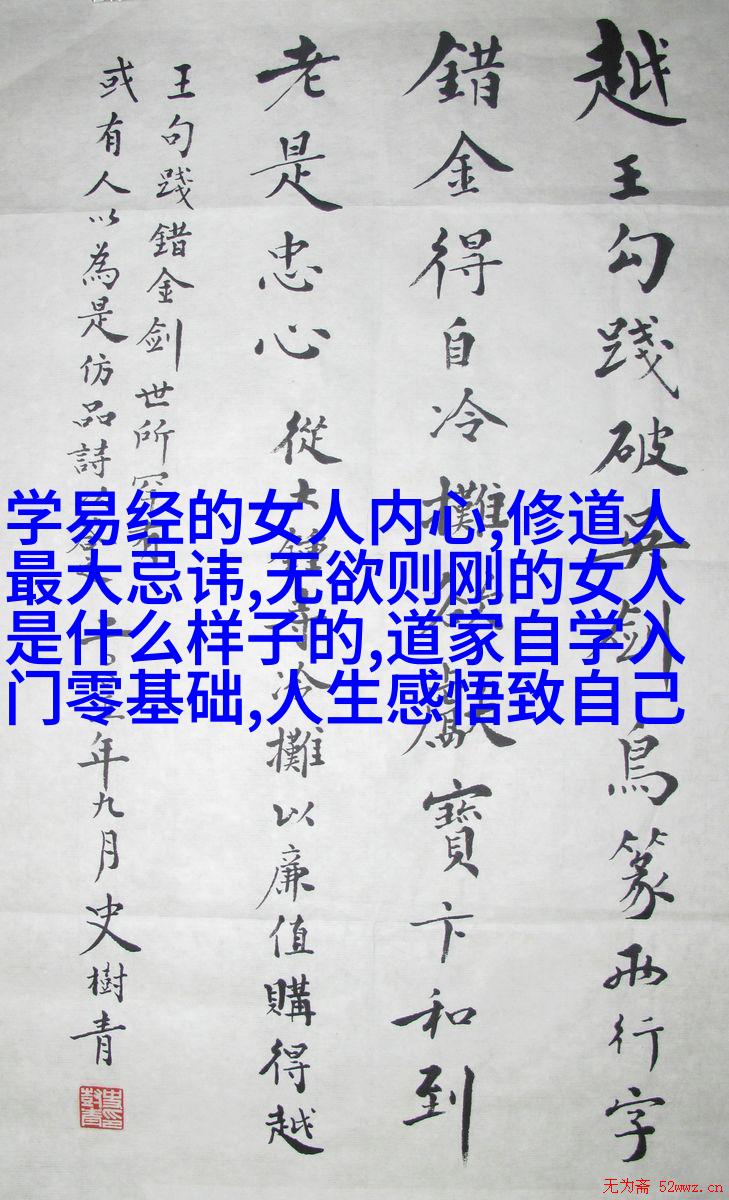 越王勾踐破吳劍鳥篆兩行字
錯金得自冷攤獻寶卞和到
老是忠心 從大鐘寺冷攤以廉值購得越
王句踐錯金剑世所罕
或有人以為是仿品詩年九月史樹青
学易经的女人内心,修道人
最大忌讳,无欲则刚的女人
是什么样子的,道家自学入
门零基础,人生感悟致自己
无为斋 52wwz.cn